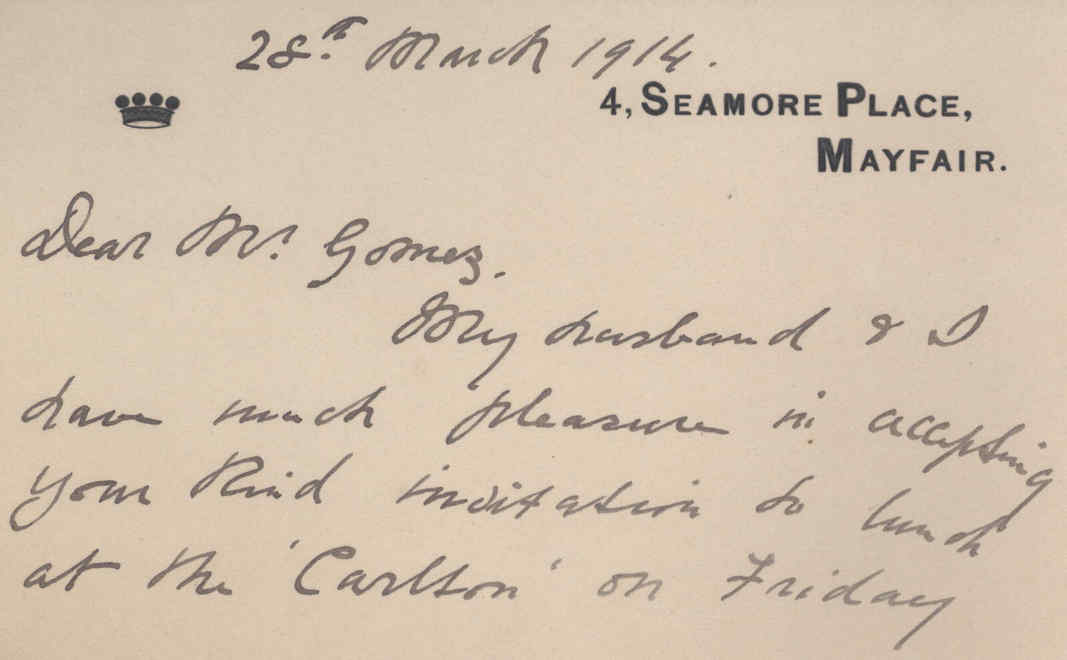 28th March 1914.
4, SEAMORE PLACE,
MAYFAIR.
Dear Mr. Gomez.
My husband & I
have much pleasure in accepting
your kind invitation to lunch
at the 'Carlton' on Friday